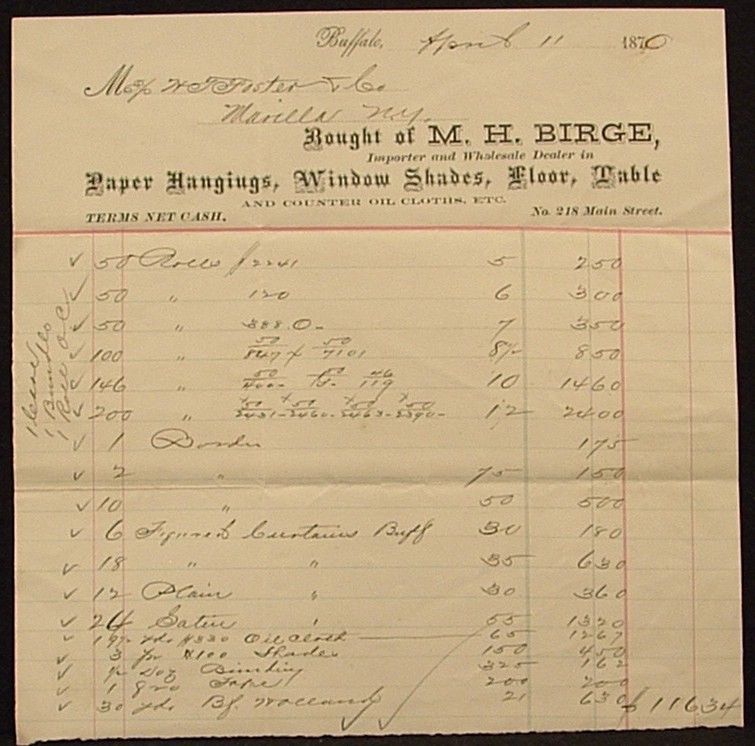 Buffalo, April 11 1870
Mess W T Foster & Co
Marilla N.Y.
Bought of M. H. BIRGE,
Importer and Wholesale Dealer in
Paper Hangings, Window Shades, Floor, Table
AND COUNTER OIL CLOTHS, ETC.
TERMS NET CASH. No. 218 Main Street.
✓ 50 Rolls 2241 5 250
✓ 50 " 120 6 300
✓ 50 " 388.0- 7 350
✓ 100 " 50 847 50 7101 8½ 850
✓ 146 " 50 400- 50 46 119 10 1460
✓ 200 " 50 2431- 50 2460- 50 2463- 50 2390- 12 2400
✓ 1 Border 175
✓ 2 " 75 150
✓ 10 " 50 500
✓ 6 Figured Curtains Buff 30 180
✓ 18 " " 35 630
✓ 12 Plain " 30 360
✓ 24 Satin " 55 1320
✓ 19½ yds #330 Oil Cloth 65 1267
✓ 3 pr #100 Shades 150 450
✓ ½ Doz Binding 325 162
✓ 1 gro Tape 200 200
✓ 30 yds Bf Holland 21 630 $116 34
1 Case
1 Bundle
1 Roll O.C.